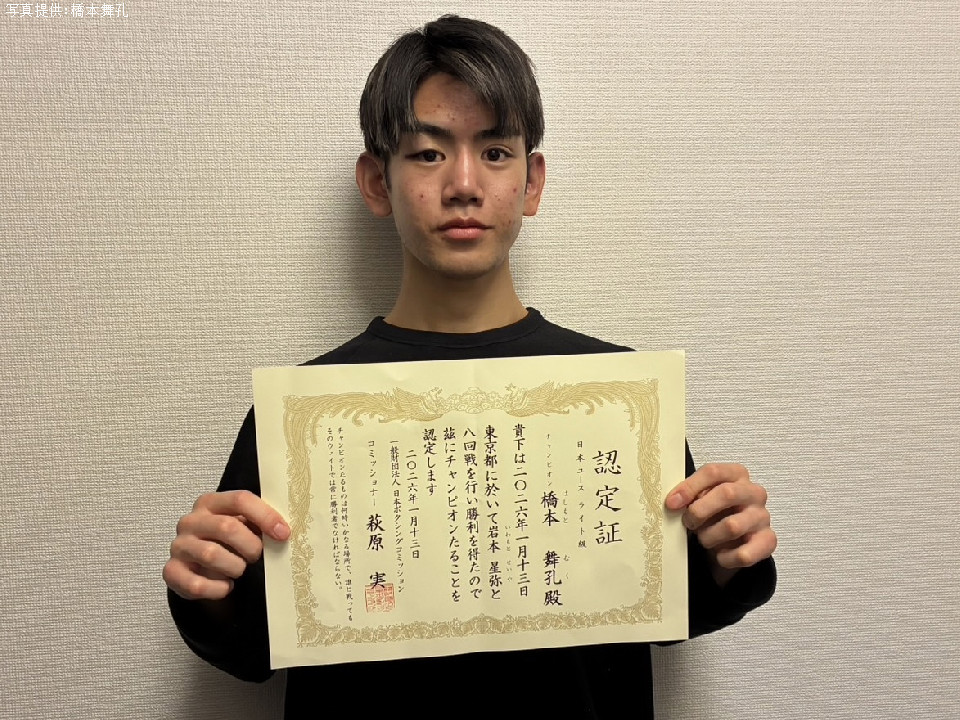 写真提供:橋本舞孔
認定証
日本ユース ライト級
チャンピオン 橋本 舞孔 殿
はしもと む く
貴下は二〇二六年一月十三日
東京都に於いて岩本 星弥と
いわもと せいや
八回戦を行い勝利を得たので
茲にチャンピオンたることを
認定します
二〇二六年一月十三日
一般財団法人 日本ボクシングコミッション
コミッショナー 萩原 実
チャンピオンたるものは何時いかなる場所で、誰と戦っても
そのファイトでは常に勝利者でなければならない。